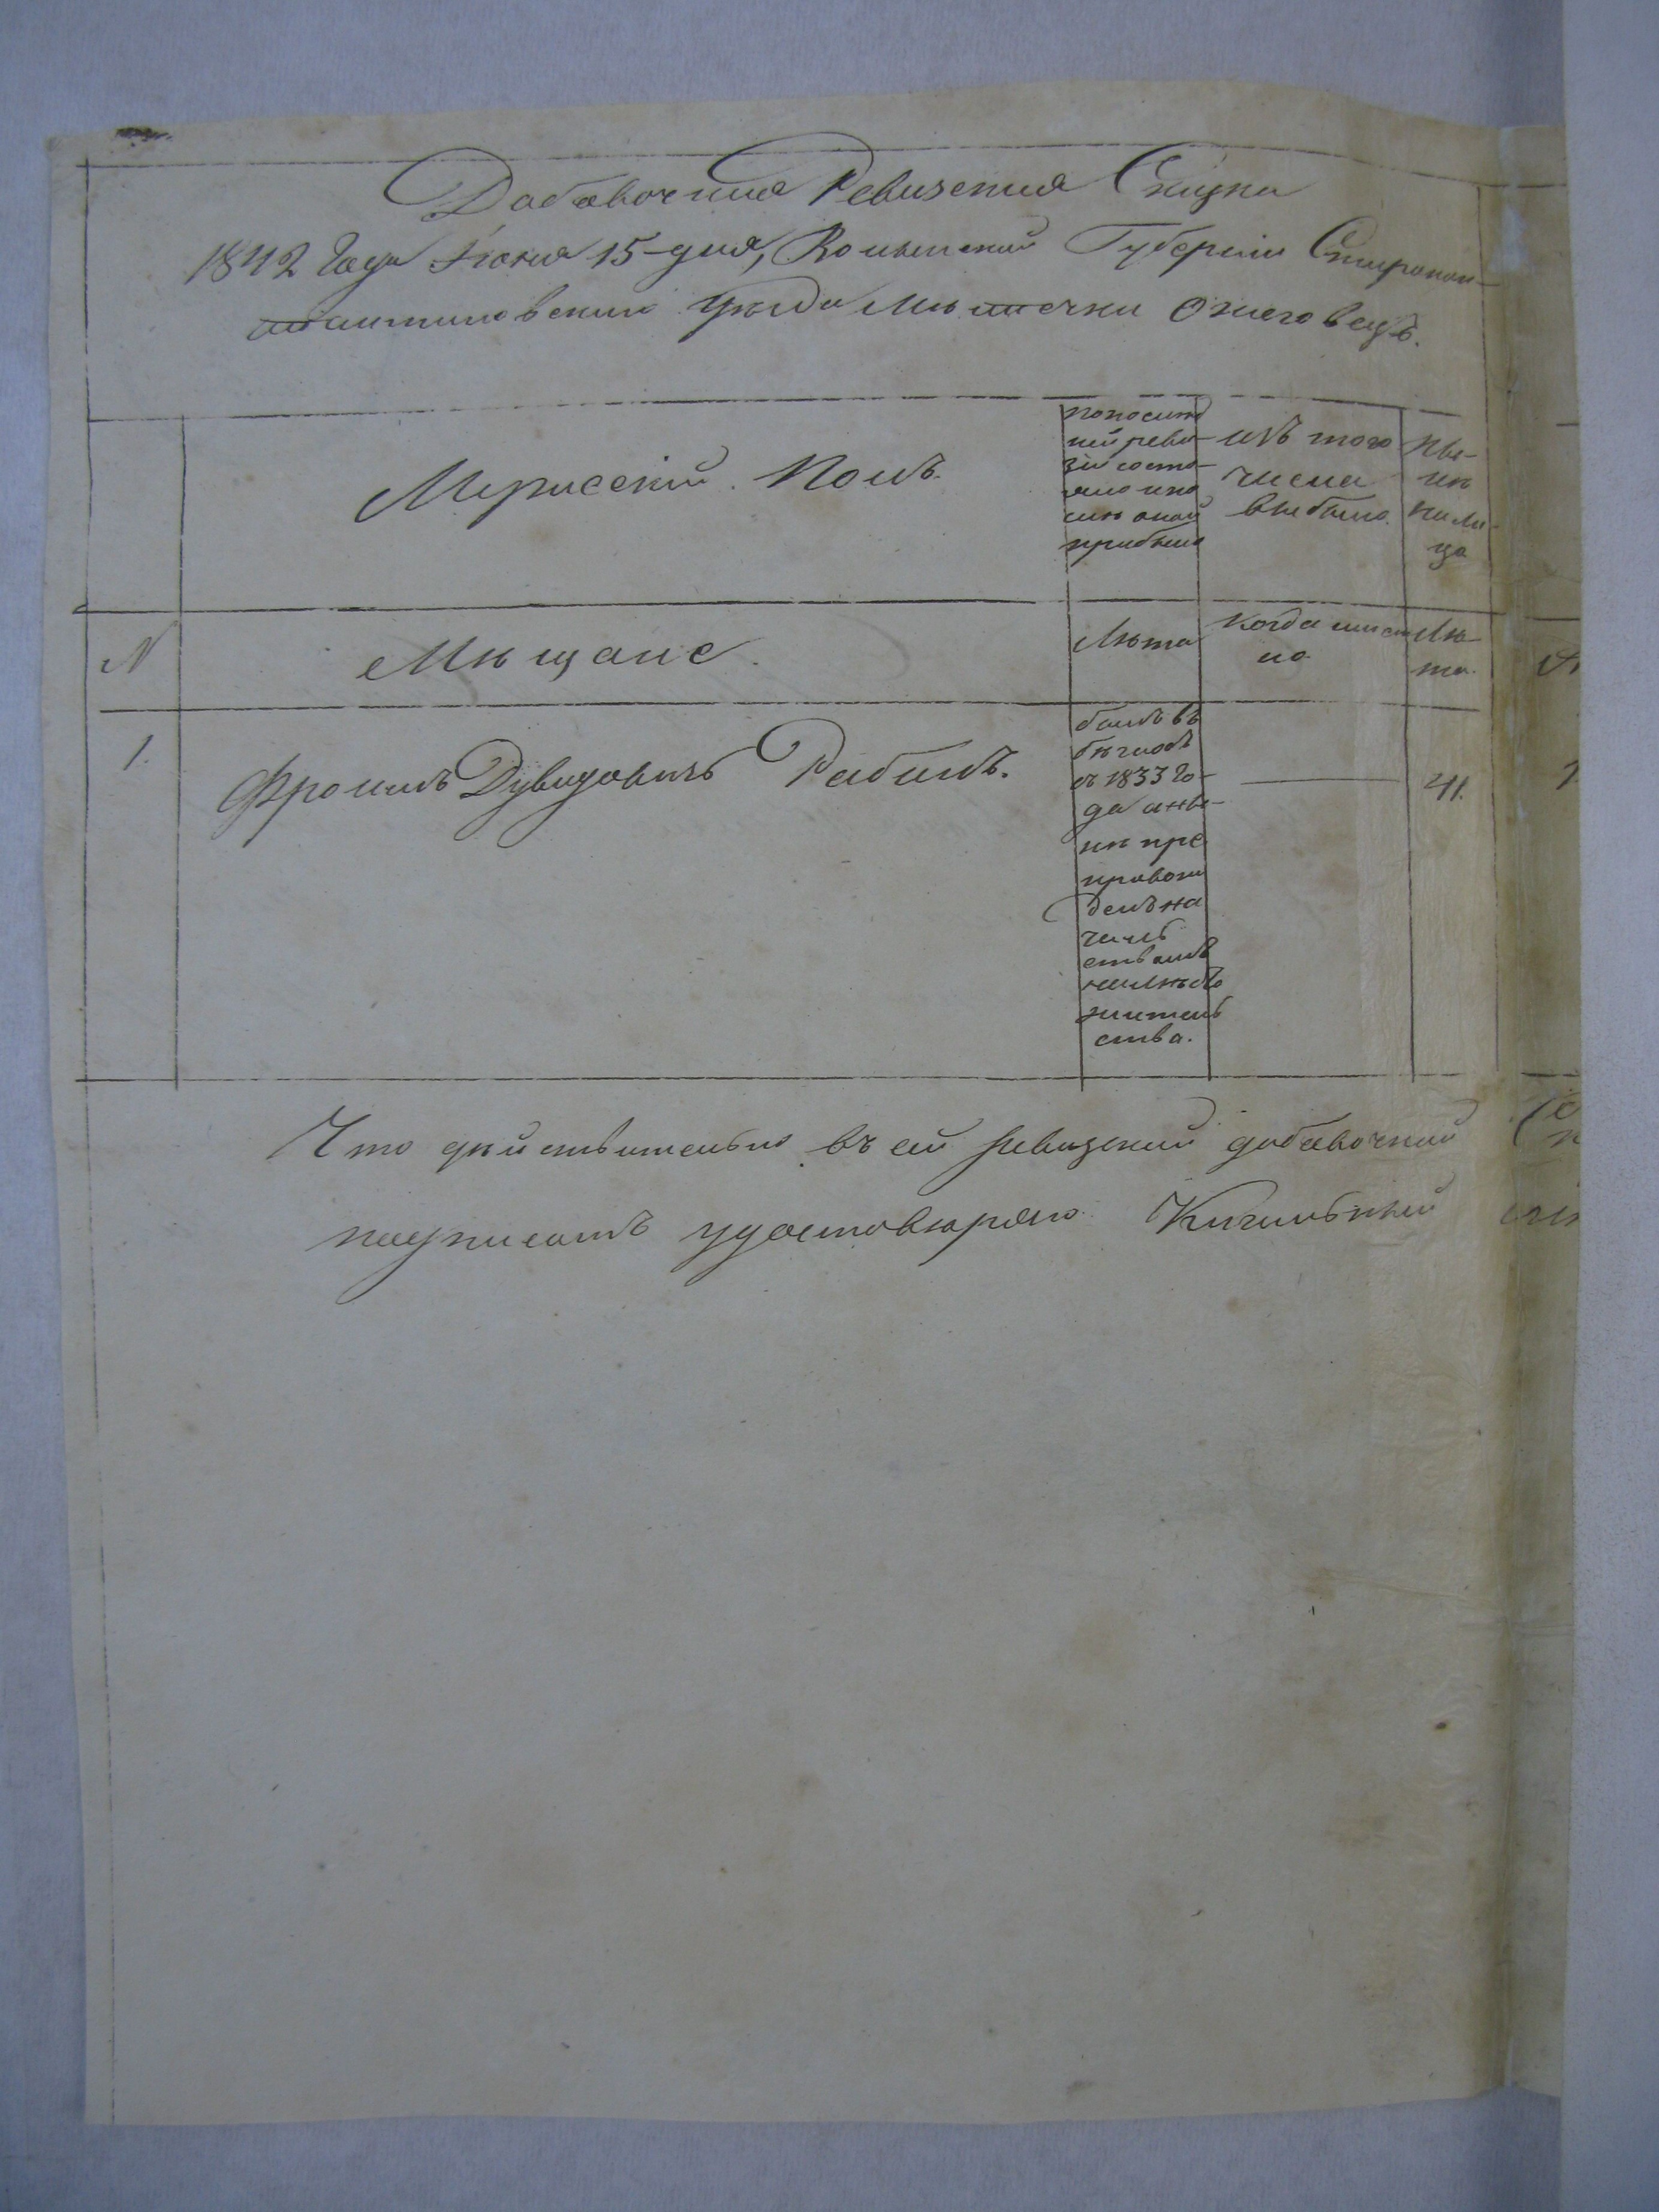 Добавочная Ревизская Скаска
1842 Года Июня 15-дня, Волынской Губернии Старокон-
стантиновскаго Уезда Местечка Ожеговецъ.
Мужескій Полъ.
попослед
ней реви-
зіи состо-
яло ипо
сле оной
прибыло
изъ того
числа
выбыло.
ны-
не
нали-
цо
N
Мещане.
Лета
Когда имен
но
Ле-
та.
1.
Фроимъ Дувидовичъ Рабинъ.
былъ въ
бегахъ
съ 1833 го-
да аны-
не пре
провож
денъ на
чаль
ствомъ
житель
ства.
41.
Что действительно въ сей ревизской добавочной
написанъ удостоверяю Кагальный